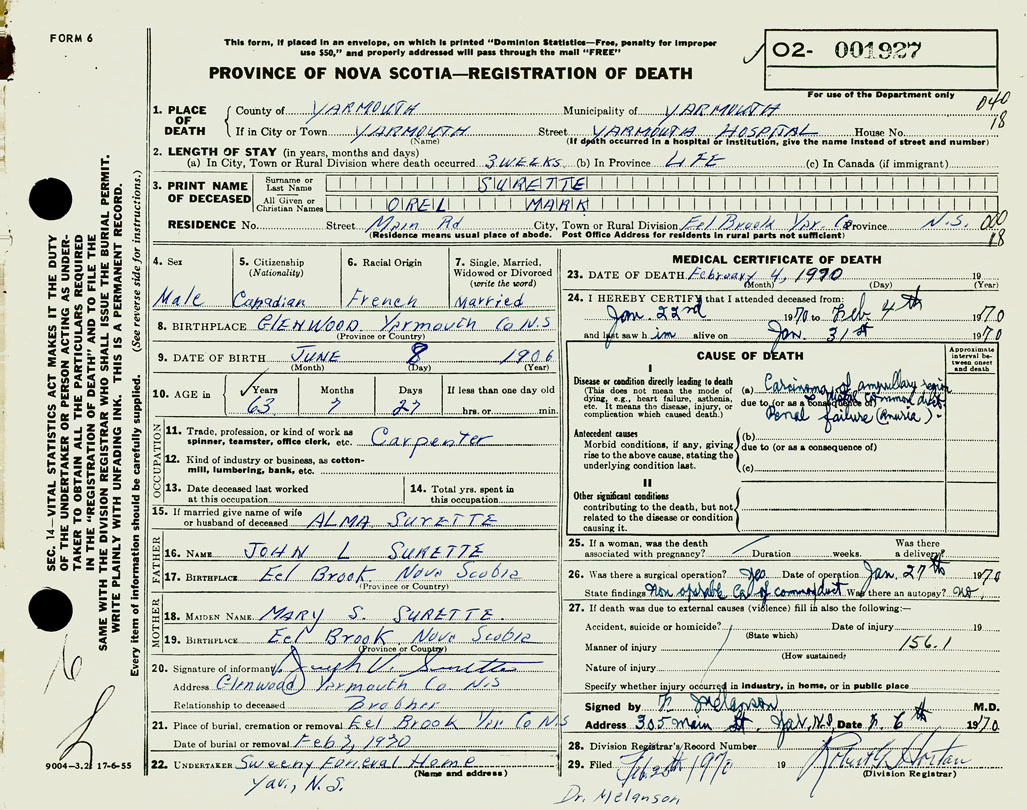 FORM 6
This form, if placed in an envelope, on which is printed "Dominion Statistics—Free, penalty for improper
use $50," and properly addressed will pass through the mail "FREE"
PROVINCE OF NOVA SCOTIA—REGISTRATION OF DEATH
02- 001927
For use of the Department only
040
18
1. PLACE OF DEATH
County of YARMOUTH Municipality of YARMOUTH
If in City or Town YARMOUTH Street YARMOUTH HOSPITAL House No.
(Name) (If death occurred in a hospital or institution, give the name instead of street and number)
2. LENGTH OF STAY (in years, months and days)
(a) In City, Town or Rural Division where death occurred 3 WEEKS (b) In Province LIFE (c) In Canada (if immigrant)
3. PRINT NAME OF DECEASED
Surname or Last Name SURETTE
All Given or Christian Names OREL MARK
RESIDENCE No. Street Main Rd City, Town or Rural Division Eel Brook Yar. Co Province N.S.
(Residence means usual place of abode. Post Office Address for residents in rural parts not sufficient)
18
4. Sex
Male
5. Citizenship
(Nationality)
Canadian
6. Racial Origin
French
7. Single, Married, Widowed or Divorced
(write the word)
Married
8. BIRTHPLACE GLENWOOD. Yarmouth Co N.S
(Province or Country)
9. DATE OF BIRTH JUNE 8 1906
(Month) (Day) (Year)
10. AGE in Years Months Days If less than one day old
63 7 27 hrs. or min.
OCCUPATION
11. Trade, profession, or kind of work as spinner, teamster, office clerk, etc. Carpenter
12. Kind of industry or business, as cotton-mill, lumbering, bank, etc.
13. Date deceased last worked at this occupation
14. Total yrs. spent in this occupation
15. If married give name of wife or husband of deceased ALMA SURETTE
FATHER
16. NAME JOHN L SURETTE
17. BIRTHPLACE Eel Brook Nova Scotia
(Province or Country)
MOTHER
18. MAIDEN NAME MARY S. SURETTE
19. BIRTHPLACE Eel Brook Nova Scotia
(Province or Country)
20. Signature of informant Joseph V. Surette
Address Glenwood Yarmouth Co. N.S
Relationship to deceased Brother
21. Place of burial, cremation or removal Eel Brook Yar Co N.S
Date of burial or removal Feb 7, 1970
22. UNDERTAKER Sweeny Funeral Home
(Name and address)
Yar., N.S.
MEDICAL CERTIFICATE OF DEATH
23. DATE OF DEATH February 4, 1970 19
(Month) (Day) (Year)
24. I HEREBY CERTIFY that I attended deceased from:
Jan. 22nd 1970 to Feb 4th 1970
and last saw him alive on Jan. 31st 1970
CAUSE OF DEATH
Approximate interval between onset and death
I
Disease or condition directly leading to death
(This does not mean the mode of dying, e.g., heart failure, asthenia, etc. It means the disease, injury, or complication which caused death.)
(a) Carcinoma of ampullary region
distal common duct
due to (or as a consequence of)
Renal failure (Anuria)
Antecedent causes
Morbid conditions, if any, giving rise to the above cause, stating the underlying condition last.
(b)
due to (or as a consequence of)
(c)
II
Other significant conditions
contributing to the death, but not related to the disease or condition causing it.
25. If a woman, was the death associated with pregnancy? Duration weeks. Was there a delivery?
26. Was there a surgical operation? Yes Date of operation Jan. 27th 1970
State findings Non operable Ca of common duct Was there an autopsy? no
27. If death was due to external causes (violence) fill in also the following:—
Accident, suicide or homicide? Date of injury 19
(State which)
Manner of injury 156.1
(How sustained)
Nature of injury
Specify whether injury occurred in industry, in home, or in public place
Signed by Melanson M.D.
Address 305 Main St. Yar, N.S. Date 6th 1970
28. Division Registrar's Record Number
29. Filed Feb. 1970 19 Horton
(Division Registrar)
Dr. Melanson
SEC. 14—VITAL STATISTICS ACT MAKES IT THE DUTY
OF THE UNDERTAKER OR PERSON ACTING AS UNDER-
TAKER TO OBTAIN ALL THE PARTICULARS REQUIRED
IN THE "REGISTRATION OF DEATH" AND TO FILE THE
SAME WITH THE DIVISION REGISTRAR WHO SHALL ISSUE THE BURIAL PERMIT.
WRITE PLAINLY WITH UNFADING INK. THIS IS A PERMANENT RECORD.
Every item of information should be carefully supplied. (See reverse side for instructions.)
9004-3.2 17-6-55